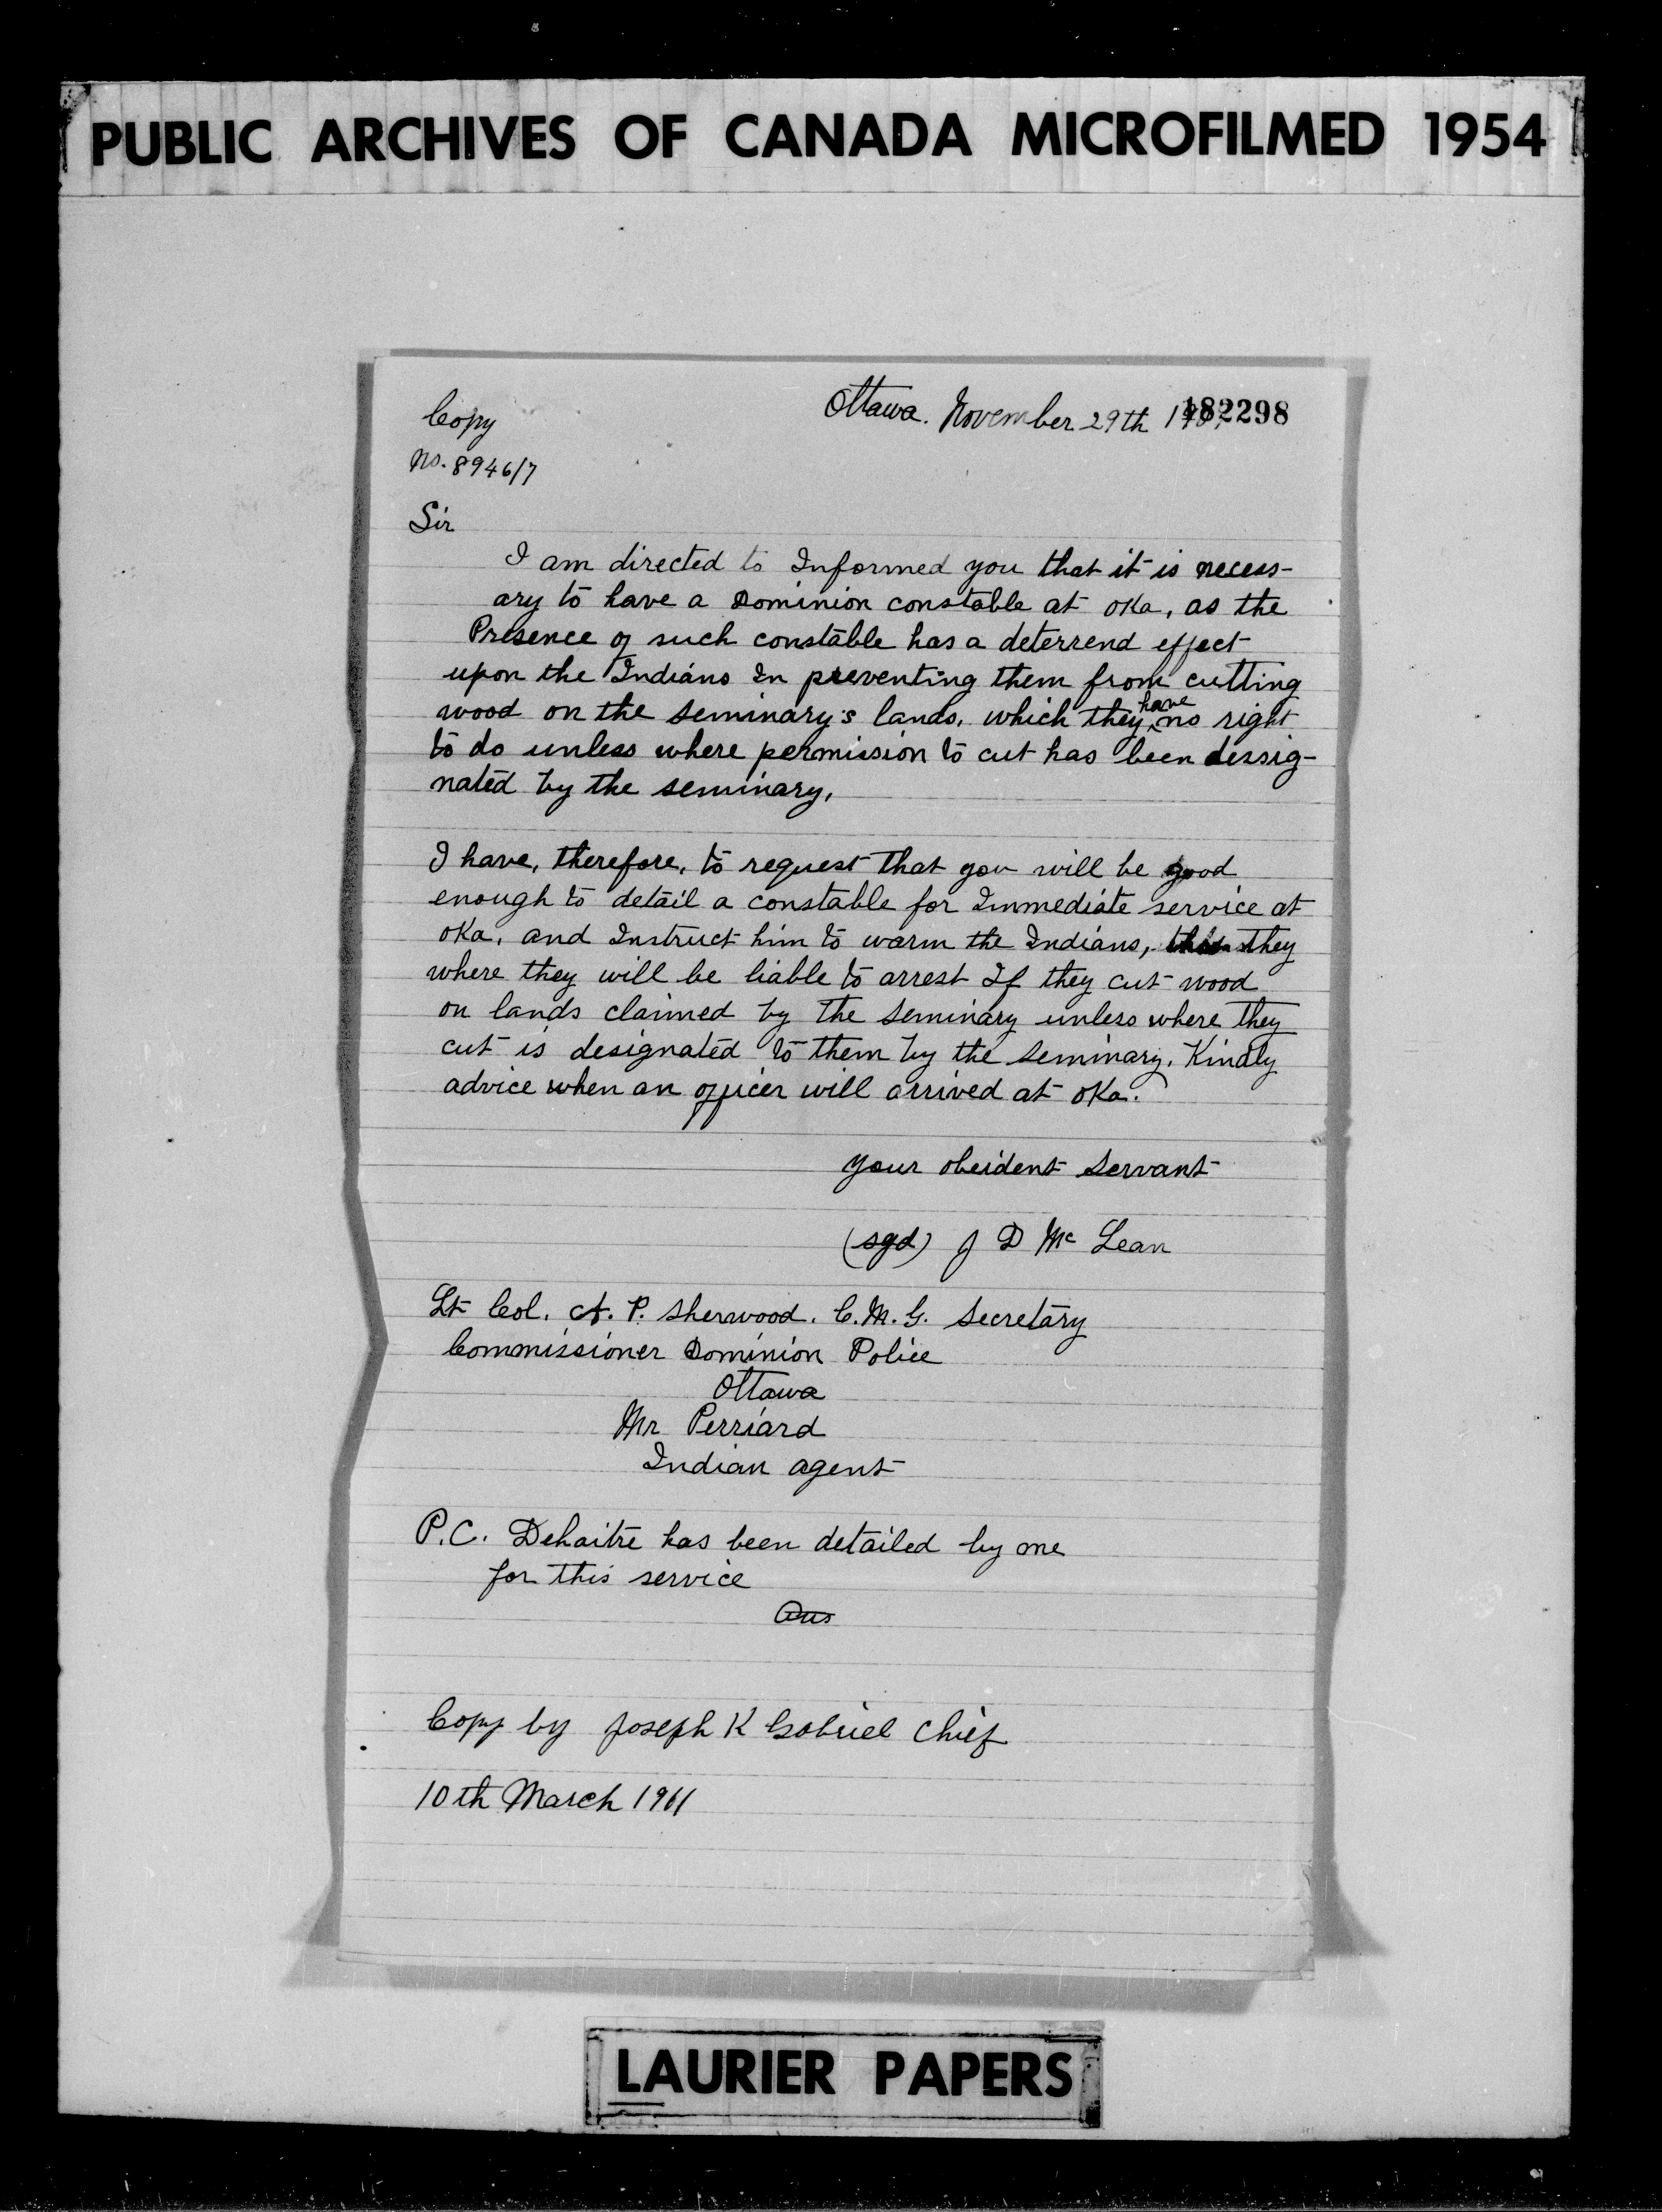 PUBLIC ARCHIVES OF CANADA MICROFILMED 1954
Copy
Ottawa. November 29th 182298
No. 8946/7
Sir
I am directed to Informed you that it is necess-
ary to have a Dominion constable at oka, as the
Presence of such constable has a deterrend effect
upon the Indians In preventing them from cutting
wood on the seminary's lands, which they have no right
to do unless where permission to cut has been dessig-
nated by the seminary,
I have, therefore, to request that you will be good
enough to detail a constable for Immediate service at
oka, and Instruct him to warm the Indians, they
where they will be liable to arrest If they cut wood
on lands claimed by the seminary unless where they
cut is designated to them by the seminary. Kindly
advice when an officer will arrived at oka.
your obeident servant
(sgd) J D Mc Lean
Lt Col. A. P. Sherwood. C.M.G. Secretary
Commissioner Dominion Police
Ottawa
Mr Perriard
Indian agent
P.C. Dehaitre has been detailed by me
for this service
Copy by Joseph K Gabriel Chief
10th March 1911
LAURIER PAPERS